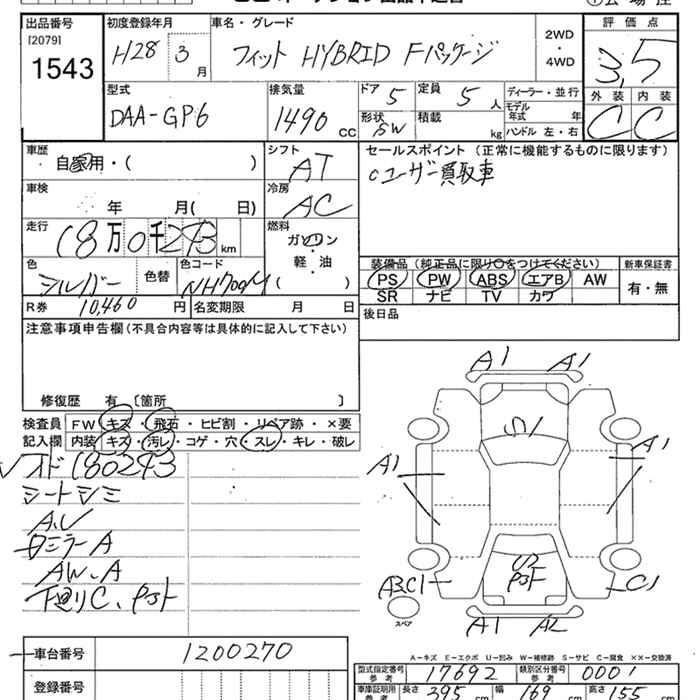 出品番号 初度登録年月 車名・グレード 評価点
[2079]
1543 H28 3月 フィット HYBRID Fパッケージ 2WD・4WD 3,5
型式 排気量 ドア 定員 ディーラー・並行 外装 内装
DAA-GP6 1490 CC 5 5人 モデル年式 年 C C
形状 SW 積載 kg ハンドル 左・右
車歴 シフト セールスポイント (正常に機能するものに限ります)
自家用・( ) AT cユーザー買取車
車検 冷房
年 月( 日) AC
走行 燃料
18万0千293km ガソリン
軽・油
( )
色 色替 色コード 装備品(純正品に限り○をつけてください) 新車保証書
シルバー NH700M PS PW ABS エアB AW 有・無
SR ナビ TV カワ
R券 10,460円 名変期限 月 日 後日品
注意事項申告欄(不具合内容等は具体的に記入して下さい)
修復歴 有 〔箇所 〕
検査員 FW キズ・飛石・ヒビ割・リペア跡・×要
記入欄 内装 キズ・汚レ・コゲ・穴・スレ・キレ・破レ
オド180293
シートシミ
ミラーA
AW、A
下廻りC、
A1 A1
A1 A1
C1
A1 A2
スペア
A-キズ E-エクボ U-凹み W-補修跡 S-サビ C-腐食 ××-交換済
車台番号 1200270
型式指定番号 参考 17692 類別区分番号 参考 0001
登録番号
車庫証明用 参考 長さ 395 cm 幅 169 cm 高さ 155 cm